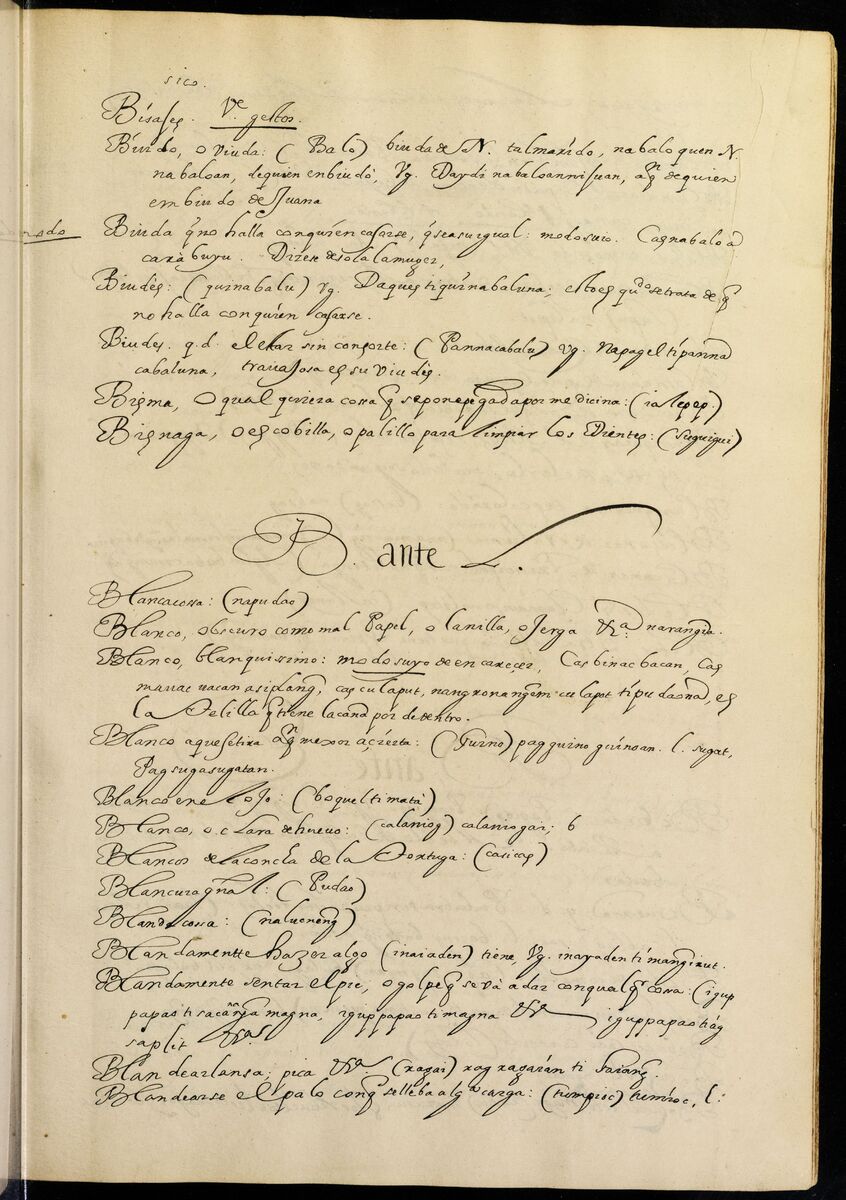 sico.
Bisajes. Vᵉ gestos.
Biudo, o viuda: (Balo) biuda de N. tal marido, nabalo quen N.
nabaloan, de quien enbiudó, vg. Daydi nabaloanni Juan, aqⁿ de quien
embiudo de Juana
Biuda q̃ no halla con quien casarse, q̃ sea su igual: modo suio. Casnabalo a
carabuyu. Dizese de sola la muger,
Biudes: (quinabalu) vg. Daques ti quinabaluna; esto es qᵈᵒ se trata de q̃
no halla con quien casarse.
Biudes. q.d. el estar sin consorte: (Pannacabalu) vg. Napagel ti panna
cabaluna, travajosa es su viudes.
Bisma, o qual quiera cossa q̃ se pone pegada por medicina: (ialepep.)
Bisnaga, o escobilla, o palillo para limpiar los Dientes: (suguigui)
B. ante L.
Blanca cossa: (napudao)
Blanco, obscuro como mal Papel, o lanilla, o Jerga &ᵃ: narangra.
Blanco, blanquissimo: modo suyo de encareçer, Cas binacbacan, Cas
manac vacan asiplang, cas culaput, nangronangem culapot ti pudaona, es
la Telilla q̃ tiene la caña por de dentro.
Blanco aquese tira aqⁿ mexor açierta: (Gurno) pag guino guinoan. l. sugat,
Pag suga sugatan.
Blanco en el ojo: (boquel ti matà)
Blanco, o clara de huevo: (calaniog) calaniogan; 6
Blancos de la concha de la Tortuga: (casicas)
Blancura gñal: (Pudao)
Blanda cossa: (nalueneng)
Blandamentte hazer algo (inaiaden) tiene, vg. inayaden ti mangirut.
Blandamente sentar el pie, o golpe q̃ se và a dar con qualq̃ cossa: (igup
papas ti sacañga magna, iguppapas ti magna &ᵃ iguppapas ti ag
saplit &ᵃˢ
Blandear lansa, pica &ᵃ. (xagai) xag xagaian ti Sarang.
Blandearse el palo con q̃ se lleba algᵃ carga: (tumpioc) tumioc, l: